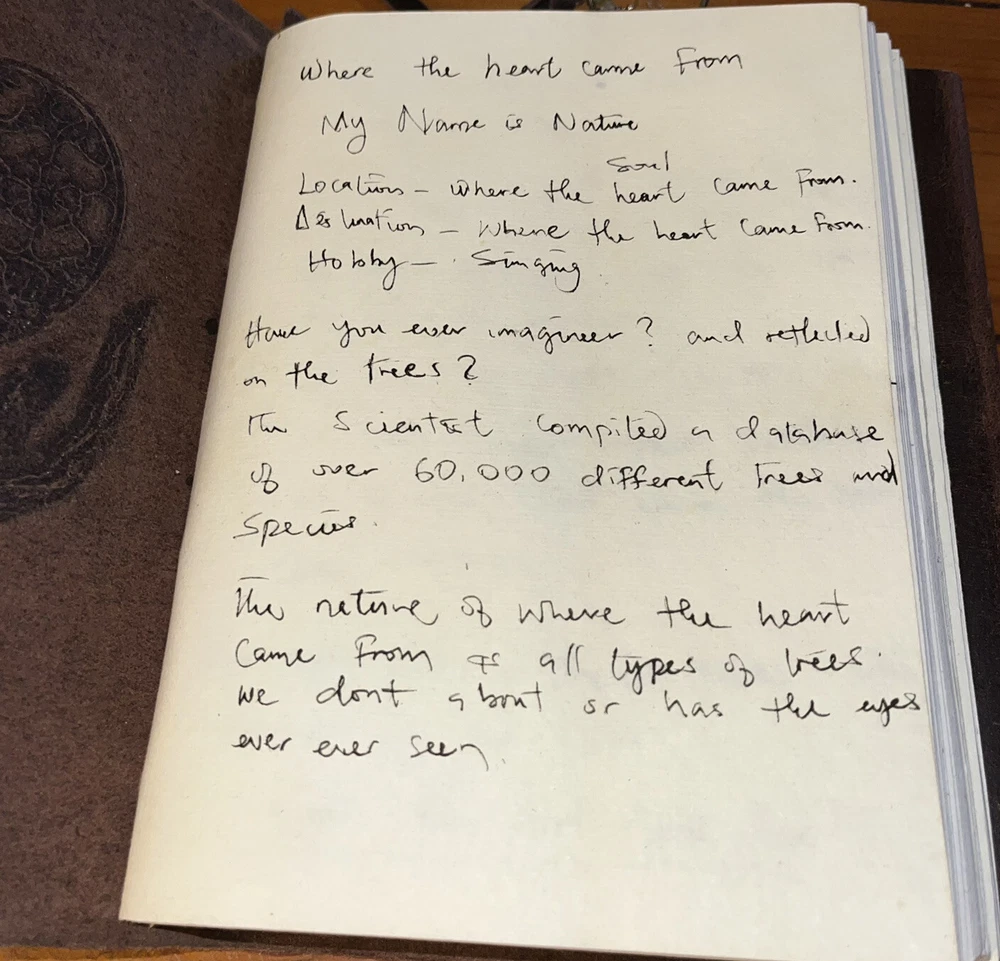 Where the heart came From
My Name is Nature
Soul
Location - Where the heart came From.
Destination - Where the heart came From.
Hobby - Singing
Have you ever imagineer? and reflected
on the trees?
The Scientist compiled a database
of over 60,000 different trees and
Species.
The nature of where the heart
came From is all types of trees.
we dont about or has the eyes
ever ever seen.